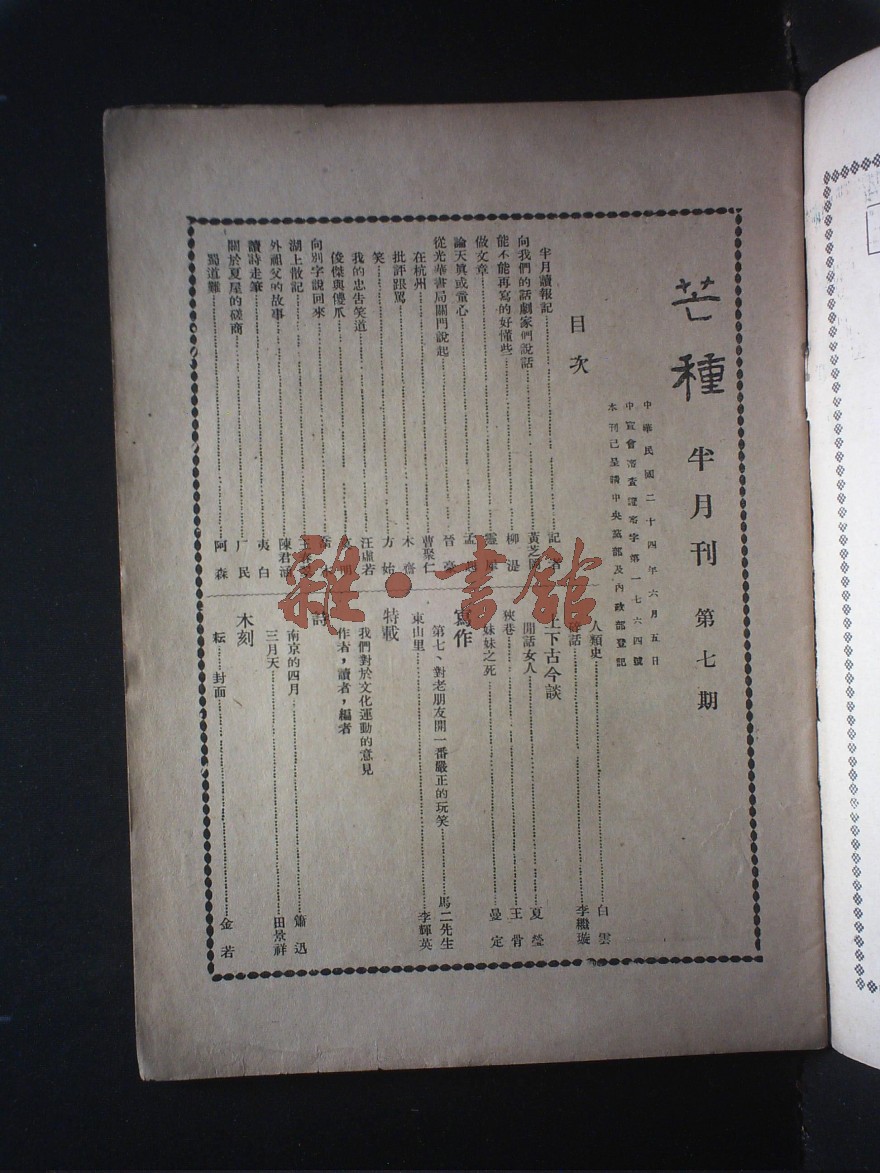 芒種 半月刊 第七期
中華民國二十四年六月五日
中宣會審查證審字第一七六四號
本刊已呈請中央黨部及內政部登記
目次
半月讀報記 記者
向我們的話劇家們說話 黃芝岡
能不能再寫的好懂些 柳湜
做文章
論天真或童心
從光華書局關門說起
在杭州 曹聚仁
批評跟罵 木齋
笑 方姑
我的忠告笑道 汪虛若
俊傑與傻爪
向別字說回來
湖上散記
外祖父的故事 陳君涵
讀詩走筆 夷白
關於夏屋的磋商 厂民
蜀道難 阿森
人類史 白雲
話
上下古今談
閒話女人 夏瑩
狹巷 王骨
妹妹之死 曼定
寫作
第七、對老朋友開一番嚴正的玩笑 馬二先生
東山里 李輝英
特載
我們對於文化運動的意見
作者,讀者,編者
詩
南京的四月 蕭迅
三月天 田景祥
木刻
耘 封面 金若
雜·書館